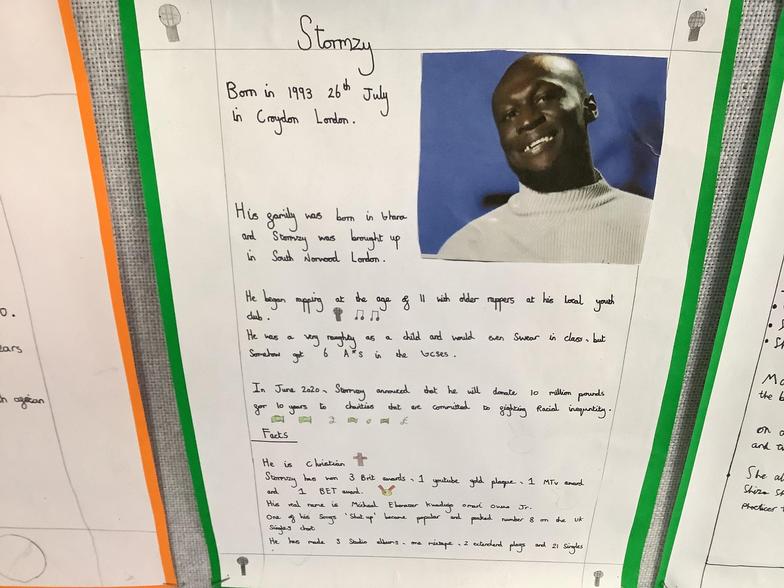 Stormzy
Born in 1993 26th July
in Croydon London.
His family was born in Ghana
and Stormzy was brought up
in South Norwood London.
He began rapping at the age of 11 with older rappers at his local youth
club.
He was a very naughty as a child and would even Swear in class, but
Somehow got 6 A*s in the GCSES.
In June 2020, Stormzy announced that he will donate 10 million pounds
for 10 years to charities that are committed to fighting Racial inequality.
Facts
He is Christian
Stormzy has won 3 Brit awards, 1 youtube gold plaque, 1 MTV award
and 1 BET award.
His real name is Michael Ebenazer Kwadjo Omari Owuo Jr.
One of his Songs 'Shut up' became popular and peaked number 8 on the UK
Singles chart.
He has made 3 Studio albums, one mixtape, 2 extended plays and 21 Singles
o.
ears
on
and
She al
Shiza
Producer
the b